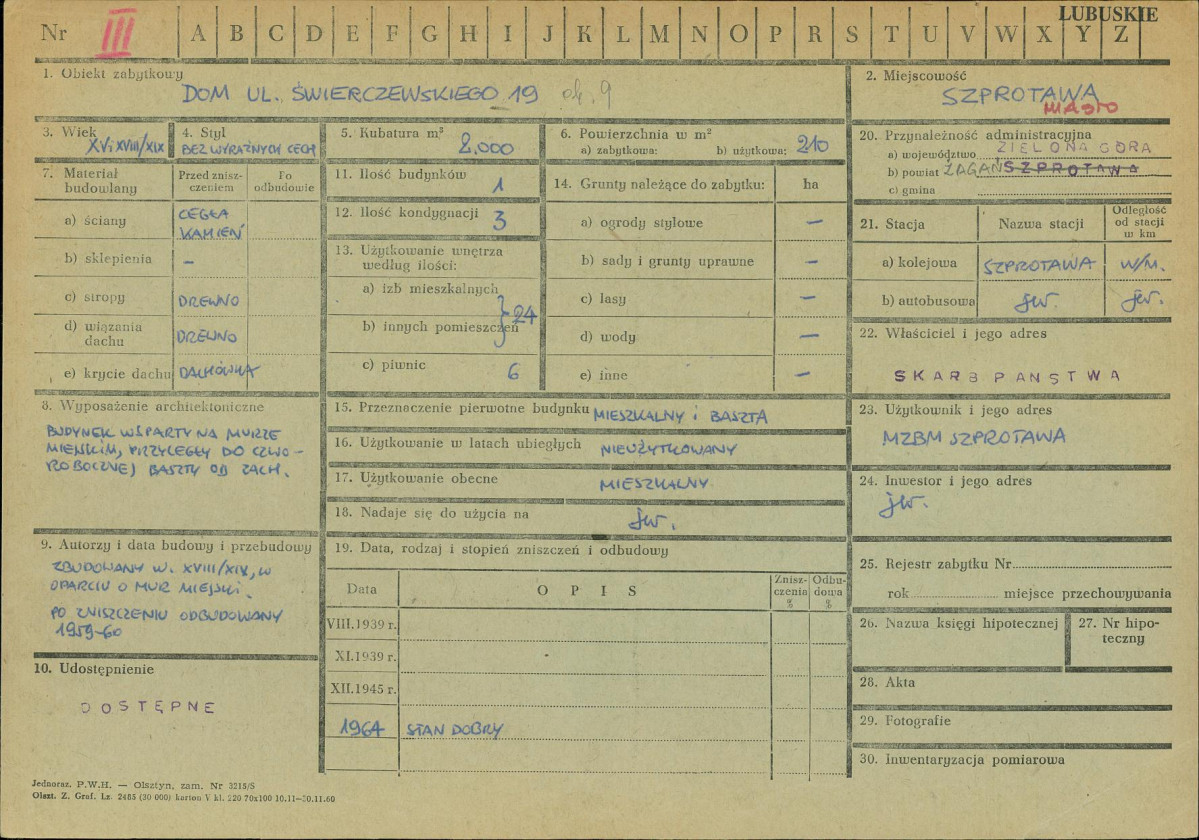 LUBUSKIE
Nr III A B C D E F G H I J K L M N O P R S T U V W X Y Z
1. Obiekt zabytkowy
DOM UL. ŚWIERCZEWSKIEGO 19 ok. 9
2. Miejscowość
SZPROTAWA
MIASTO
3. Wiek
XV i XVIII/XIX
4. Styl
BEZ WYRAŹNYCH CECH
5. Kubatura m³
8.000
6. Powierzchnia w m²
a) zabytkowa: b) użytkowa: 210
7. Materiał budowlany
Przed zniszczeniem
Po odbudowie
a) ściany CEGŁA
KAMIEŃ
b) sklepienia –
c) stropy DREWNO
d) wiązania dachu DREWNO
e) krycie dachu DACHÓWKA
8. Wyposażenie architektoniczne
BUDYNEK WSPARTY NA MURZE
MIEJSKIM, PRZYLEGŁY DO CZWO-
ROBOCZNEJ BASZTY OD ZACH.
9. Autorzy i data budowy i przebudowy
ZBUDOWANY W. XVIII/XIX, W
OPARCIU O MUR MIEJSKI.
PO ZNISZCZENIU ODBUDOWANY
1959-60
10. Udostępnienie
DOSTĘPNE
11. Ilość budynków
1
12. Ilość kondygnacji
3
13. Użytkowanie wnętrza
według ilości:
a) izb mieszkalnych
b) innych pomieszczeń } 24
c) piwnic 6
14. Grunty należące do zabytku: ha
a) ogrody stylowe –
b) sady i grunty uprawne –
c) lasy –
d) wody –
e) inne –
15. Przeznaczenie pierwotne budynku MIESZKALNY i BASZTA
16. Użytkowanie w latach ubiegłych NIEUŻYTKOWANY
17. Użytkowanie obecne MIESZKALNY
18. Nadaje się do użycia na jw.
19. Data, rodzaj i stopień zniszczeń i odbudowy
Data OPIS Zniszczenia % Odbudowa %
VIII.1939 r.
XI.1939 r.
XII.1945 r.
1964 STAN DOBRY
20. Przynależność administracyjna
a) województwo ZIELONA GÓRA
b) powiat ŻAGAŃ SZPROTAWA
c) gmina
21. Stacja Nazwa stacji Odległość od stacji w km
a) kolejowa SZPROTAWA w/m.
b) autobusowa jw. jw.
22. Właściciel i jego adres
SKARB PAŃSTWA
23. Użytkownik i jego adres
MZBM SZPROTAWA
24. Inwestor i jego adres
jw.
25. Rejestr zabytku Nr
rok miejsce przechowywania
26. Nazwa księgi hipotecznej
27. Nr hipo-
teczny
28. Akta
29. Fotografie
30. Inwentaryzacja pomiarowa
Jednoraz. P.W.H. — Olsztyn, zam. Nr 3215/S
Olszt. Z. Graf. Lz. 2485 (30 000) karton V kl. 220 70x100 10.11—30.11.60